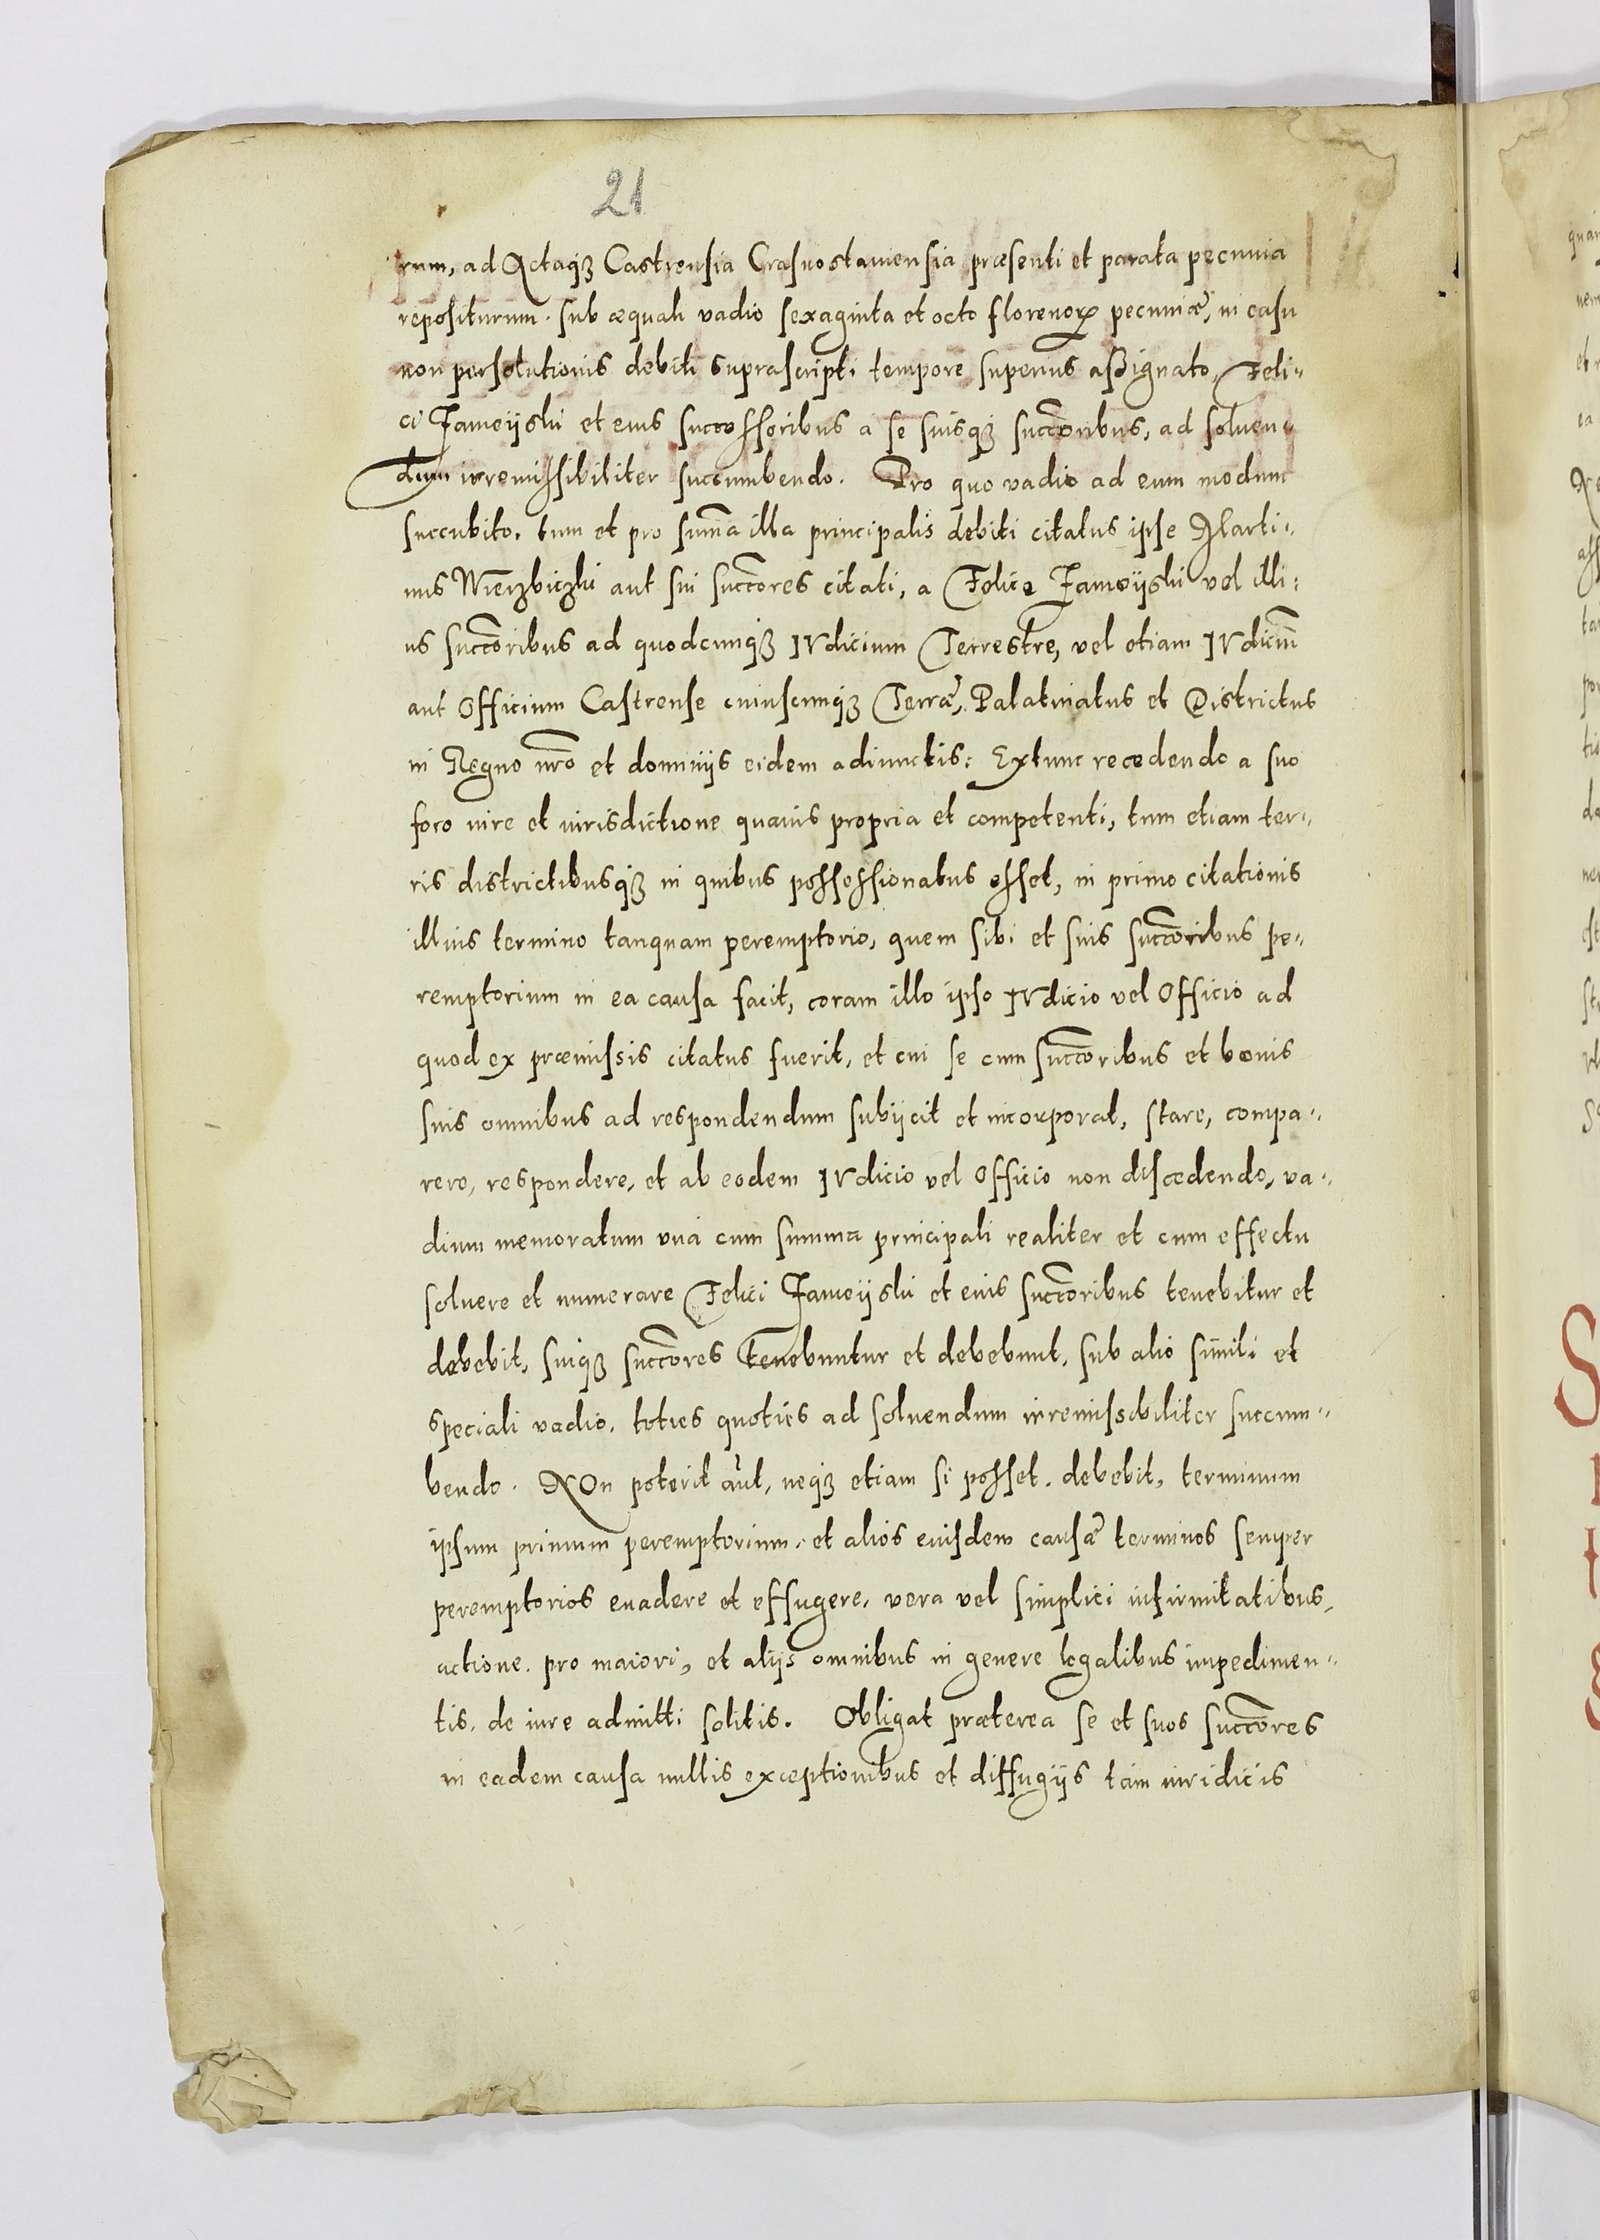 21
rum, ad Actaqꝫ Castrensia Crasnostamensia præsenti et parata pecunia
repositurum. sub æquali vadio sexaginta et octo florenoꝝ pecuniæ, in casu
non persolutionis debiti suprascripti tempore superius assignato, Feli-
ci Zameijski et eius successoribus a se suisqꝫ succ̄oribus, ad soluen-
dum irremissibiliter succumbendo. Pro quo vadio ad eum modum
succubito, tum et pro sum̄a illa principalis debiti citatus ipse Marti-
nus Wierzbiczki aut sui succ̄ores citati, a Felice Zameijski vel illi-
us succ̄oribus ad quodcunqꝫ IVdicium Terrestre, vel etiam IVdiciū
aut Officium Castrense cuiuscunqꝫ Terræ, Palatinatus et Districtus
in Regno nr̄o et dominijs eidem adiunctis: Extunc recedendo a suo
foro iure et iurisdictione quauis propria et competenti, tum etiam ter-
ris districtibusqꝫ in quibus possessionatus esset, in primo citationis
illius termino tanquam peremptorio, quem sibi et suis succ̄oribus pe-
remptorium in ea causa facit, coram illo ipso IVdicio vel Officio ad
quod ex præmissis citatus fuerit, et cui se cum succ̄oribus et bonis
suis omnibus ad respondendum subijcit et incorporat, stare, compa-
rere, respondere, et ab eodem IVdicio vel Officio non discedendo, va-
dium memoratum vna cum summa principali realiter et cum effectu
soluere et numerare Felici Zameijski et eius succ̄oribus tenebitur et
debebit, suiqꝫ succ̄ores tenebuntur et debebunt, sub alio simili et
speciali vadio, toties quoties ad soluendum irremissibiliter succum-
bendo. NOn poterit aūt, neqꝫ etiam si posset. debebit, terminum
ipsum primum peremptorium, et alios eiusdem causæ terminos semper
peremptorios euadere et effugere, vera vel simplici infirmitatibus,
actione. pro maiori, et alijs omnibus in genere legalibus impedimen-
tis, de iure admitti solitis. Obligat præterea se et suos succ̄ores
in eadem causa nullis exceptionibus et diffugijs tam iuridicis